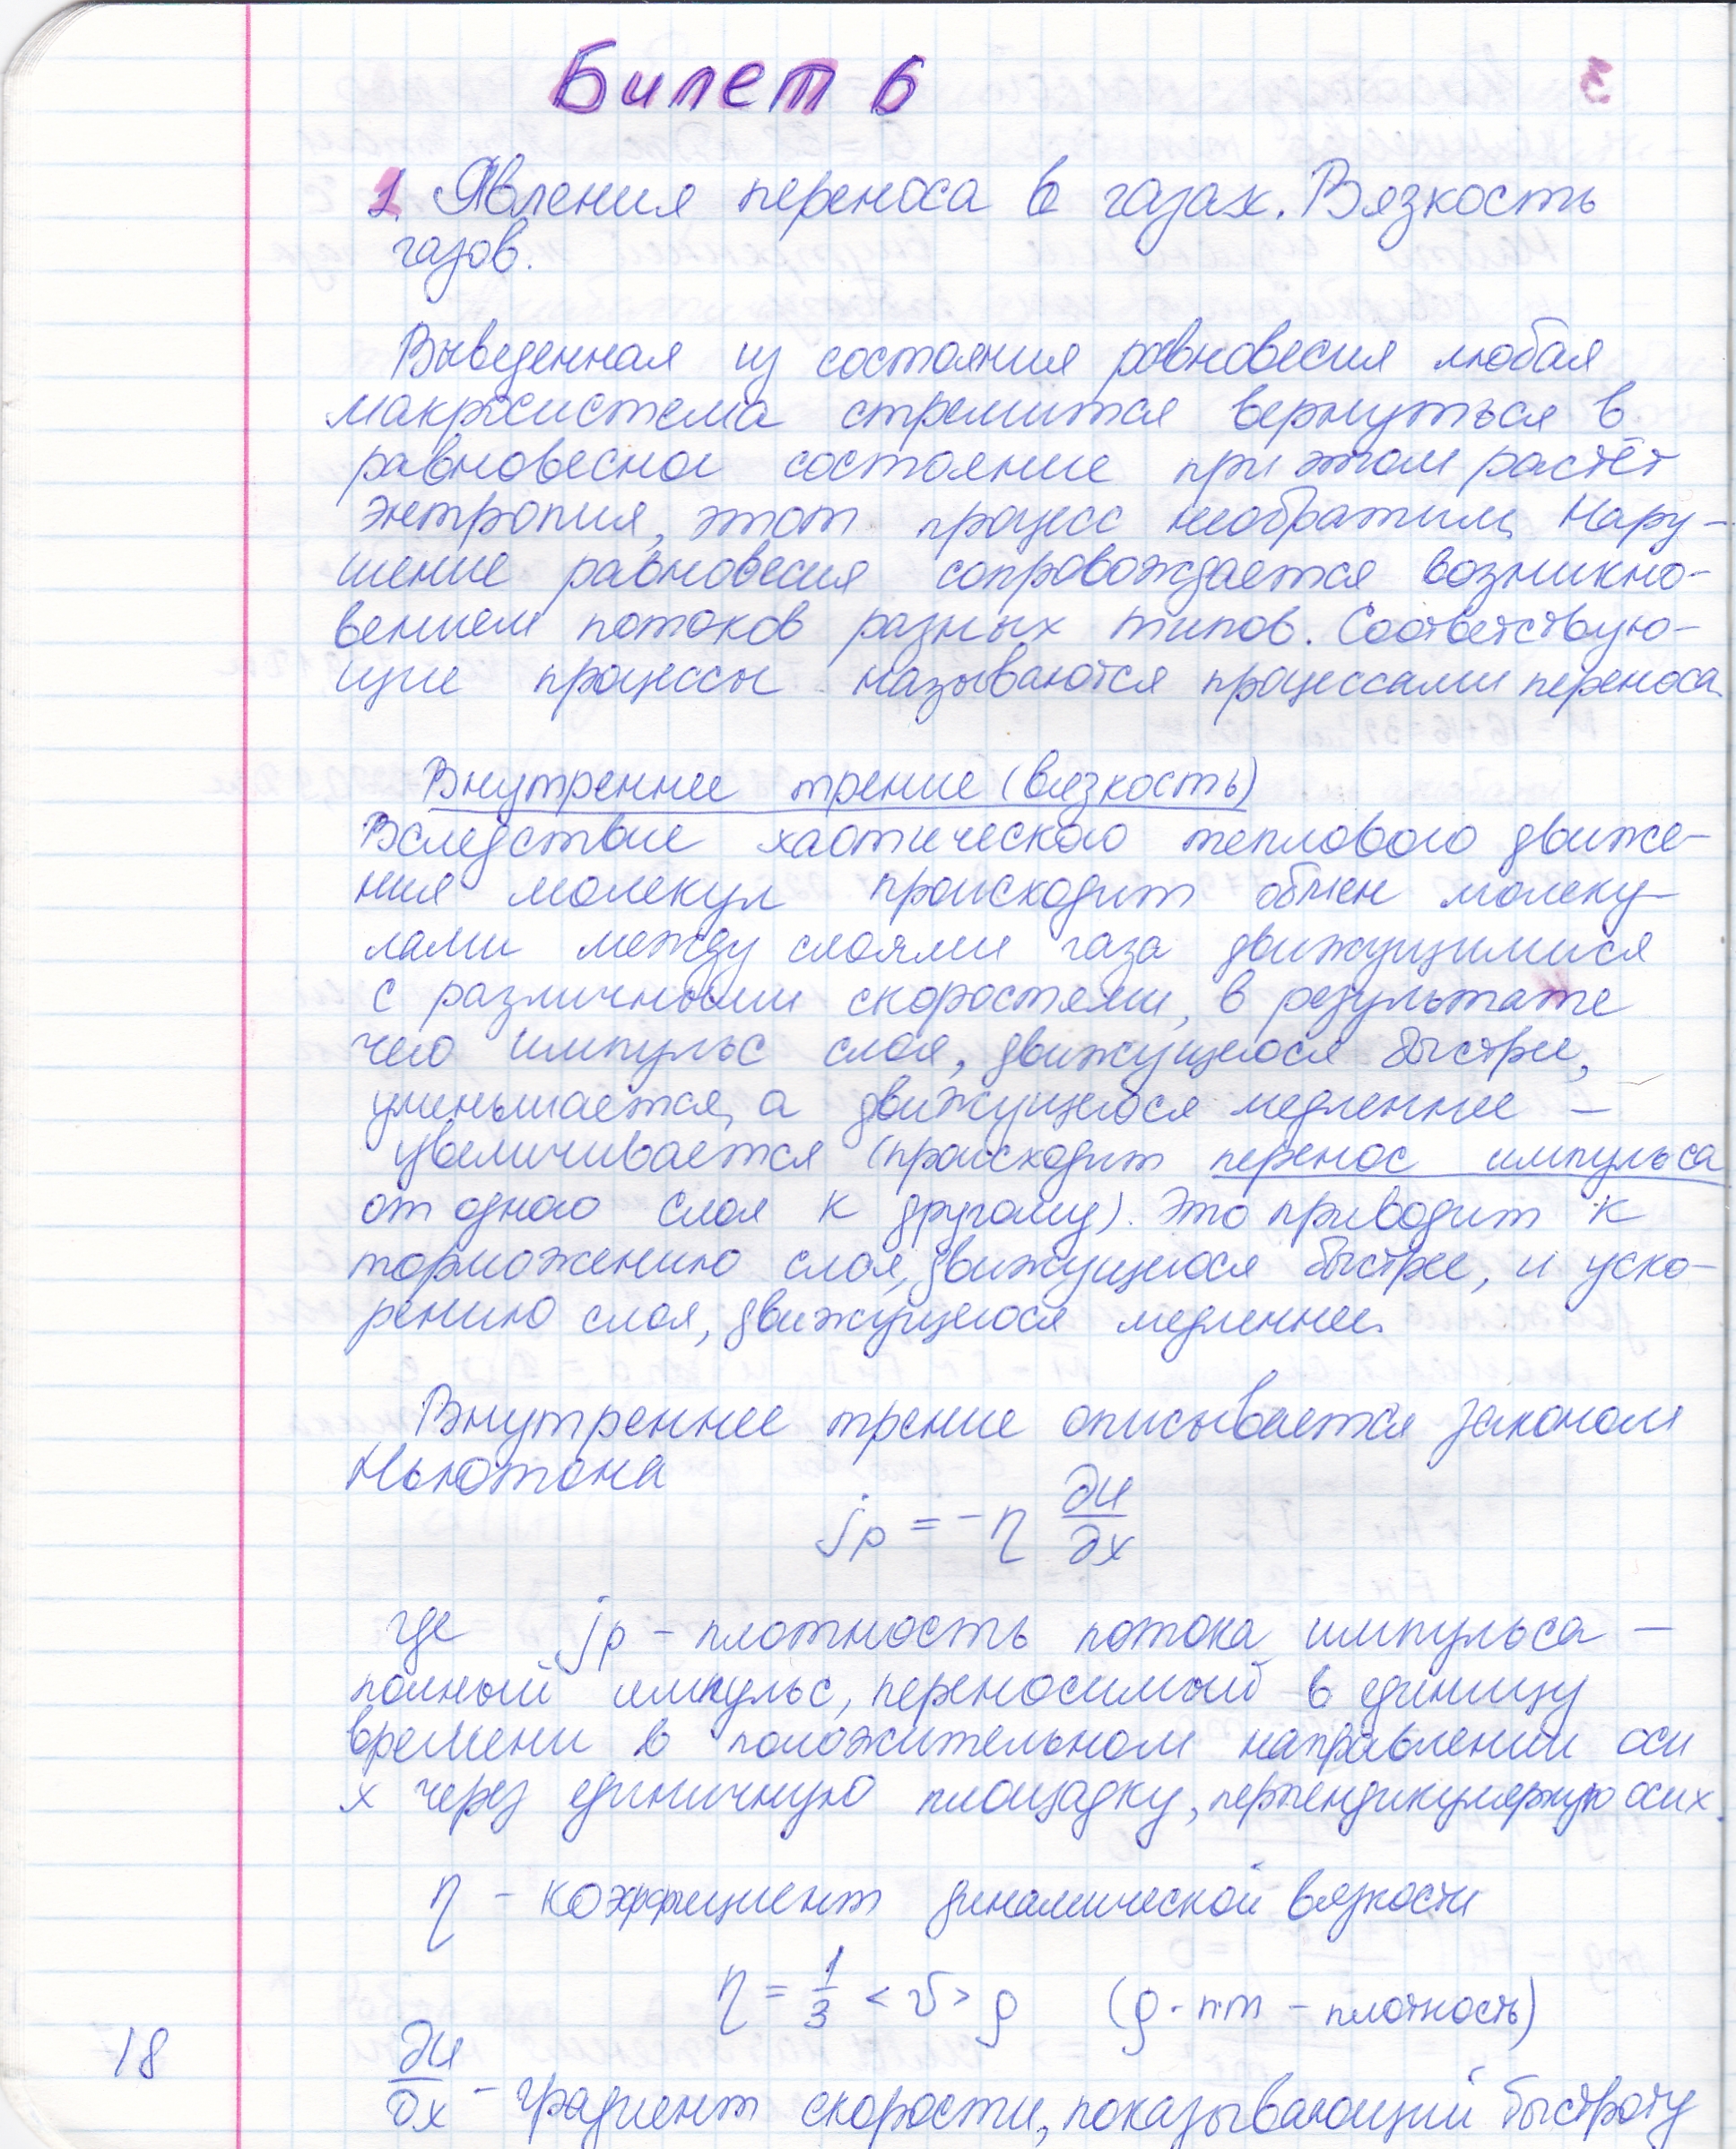 Билет 6
1. Явления переноса в газах. Вязкость
газов.
Выведенная из состояния равновесия любая
макросистема стремится вернуться в
равновесное состояние при этом растёт
энтропия, этот процесс необратим. Нару-
шение равновесия сопровождается возникно-
вением потоков разных типов. Соответствую-
щие процессы называются процессами переноса.
Внутреннее трение (вязкость)
Вследствие хаотического теплового движе-
ния молекул происходит обмен молеку-
лами между слоями газа движущимися
с различными скоростями, в результате
чего импульс слоя, движущегося быстрее,
уменьшается, а движущегося медленнее -
увеличивается (происходит перенос импульса
от одного слоя к другому). Это приводит к
торможению слоя, движущегося быстрее, и уско-
рению слоя, движущегося медленнее.
Внутреннее трение описывается законом
Ньютона
jp = -η ∂u/∂x
где jp - плотность потока импульса -
полный импульс, переносимый в единицу
времени в положительном направлении оси
x через единичную площадку, перпендикулярную оси x.
η - коэффициент динамической вязкости
η = 1/3 <v> ρ (ρ - nm - плотность)
∂u/∂x - градиент скорости, показывающий быстроту
18